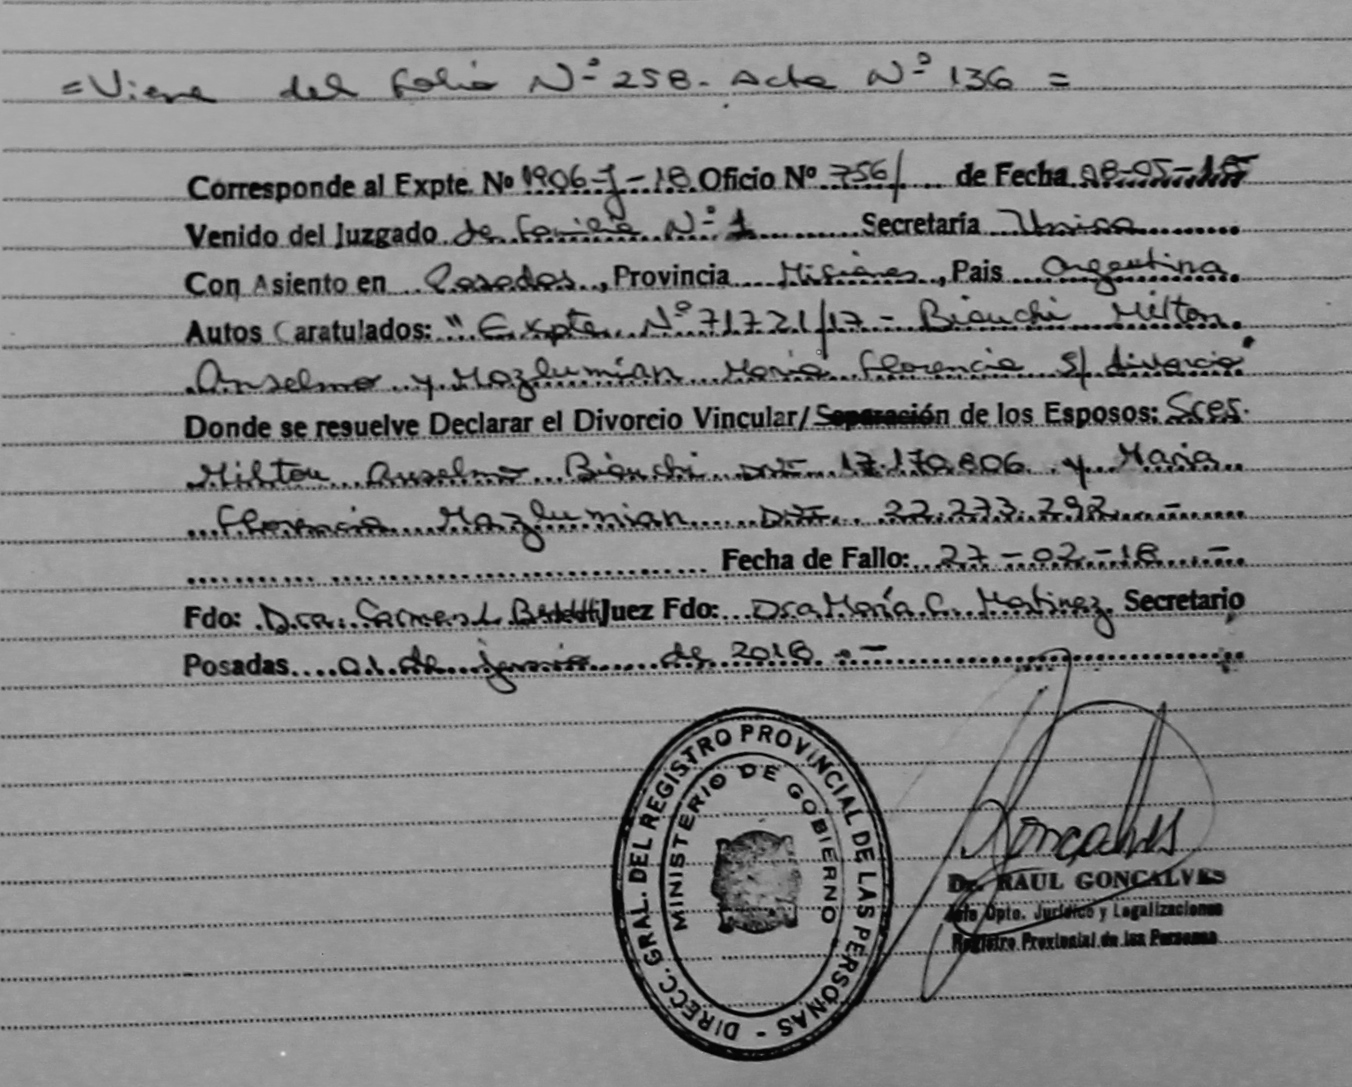 =Viene del folio Nº 258- Acta Nº 136 =
Corresponde al Expte. Nº 1906-J-18 Oficio Nº 756/ de Fecha 08-05-18
Venido del Juzgado de Familia Nº 1 Secretaría Unica
Con Asiento en Posadas, Provincia Misiones, Pais Argentina.
Autos Caratulados: "Expte Nº 71721/17- Bianchi Milton
Anselmo y Mazlumian Maria Florencia s/ divorcio"
Donde se resuelve Declarar el Divorcio Vincular/Separación de los Esposos: Sres.
Milton Anselmo Bianchi DNI 17.170.806 y Maria
Florencia Mazlumian DNI. 22.273.292.-
Fecha de Fallo: 27-02-18.-
Fdo: Dra. Carmen L. Juez Fdo: Dra María C. Martinez Secretario
Posadas 01 de junio de 2018.-
DIRECC. GRAL. DEL REGISTRO PROVINCIAL DE LAS PERSONAS -
MINISTERIO DE GOBIERNO
Goncalves
Dr. RAUL GONCALVES
Jefe Dpto. Jurídico y Legalizaciones
Registro Provincial de las Personas